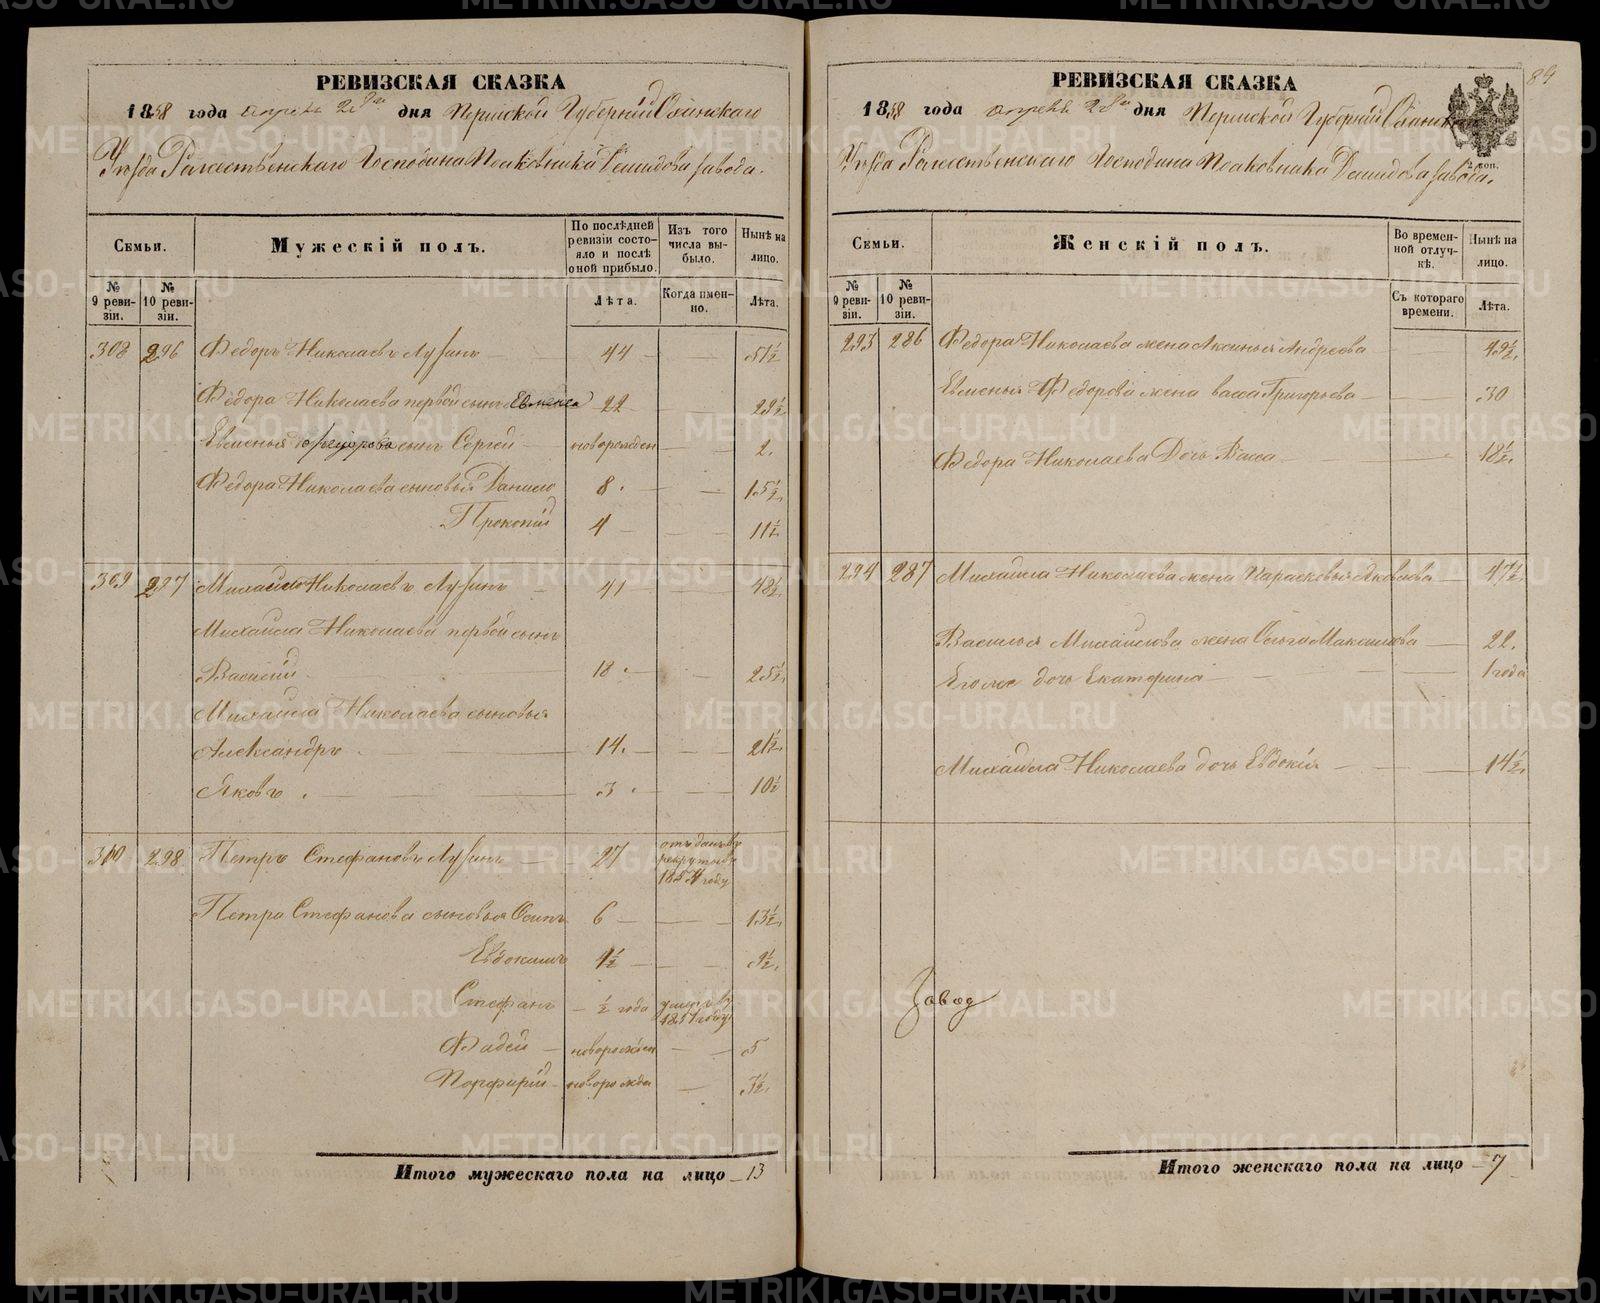 РЕВИЗСКАЯ СКАЗКА
1858 года апреля 28го дня Пермской Губернии Осинскаго
Уезда Рожественскаго Господина Полковника Демидова завода.
Семьи.
Мужескій полъ.
По послѣдней ревизіи состояло и послѣ оной прибыло.
Изъ того числа выбыло.
Нынѣ на лицо.
№ 9 ревизіи.
№ 10 ревизіи.
Лѣта.
Когда именно.
Лѣта.
308 296 Федоръ Николаевъ Лузинъ 44 51½
Федора Николаева первой сынъ Евменей 22 29½
Евменья Федорова сынъ Сергей новорожден 2.
Федора Николаева сыновья Данило 8. 15½
Прокопий 4 11½
309 297 Михайло Николаевъ Лузинъ 41 48½
Михайла Николаева первой сынъ
Василий 18. 25½
Михайла Николаева сыновья
Александръ 14. 21½
Яковъ 3. 10½
310 298 Петръ Стефановъ Лузинъ 27 отданъ въ рекруты въ 1854 году
Петра Стефанова сыновья Осипъ 6 13½
Евдокимъ 1½ 9½
Стефанъ ½ года умеръ въ 1851 году
Фадей новорожден 5
Порфирий новорожде 3½
Итого мужескаго пола на лицо 13
РЕВИЗСКАЯ СКАЗКА
84
1858 года апреля 28го дня Пермской Губернии Осинскаго
Уезда Рожественскаго Господина Полковника Демидова завода.
Семьи.
Женскій полъ.
Во временной отлучкѣ.
Нынѣ на лицо.
№ 9 ревизіи.
№ 10 ревизіи.
Съ котораго времени.
Лѣта.
293 286 Федора Николаева жена Аксинья Андреева 49½
Евменья Федорова жена Васса Григорьева 30
Федора Николаева Дочь Васса 18½
294 287 Михайла Николаева жена Парасковья Яковлева 47½
Василья Михайлова жена Ольга Максимова 22.
Его же дочь Екатерина 1 года
Михайла Николаева дочь Евдокия 14½
Завод
Итого женскаго пола на лицо 7
METRIKI.GASO-URAL.RU